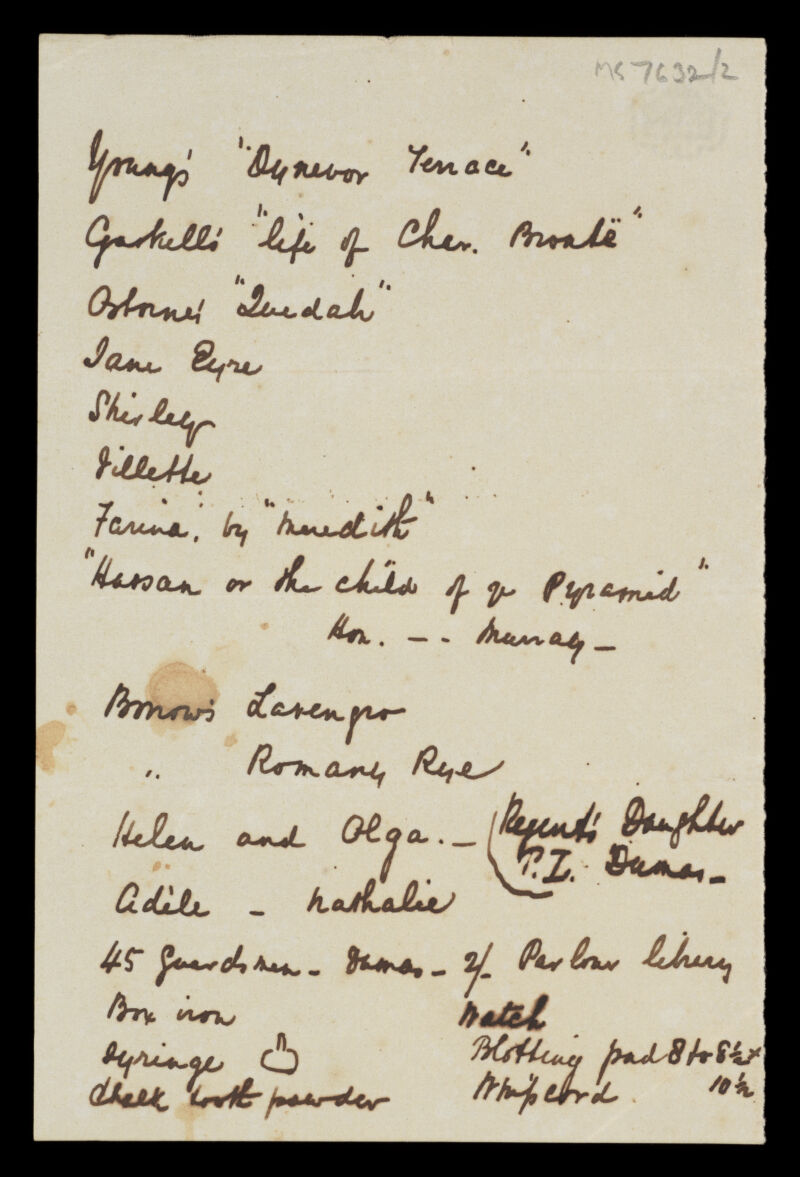 MS 7632/2
Young's "Dynevor Terrace"
Gaskell's "life of Char. Brontë"
Osborne's "Quedah"
Jane Eyre
Shirley
Villette
Farina. by "Meredith"
"Hassan or the child of ye Pyramid"
Hon. - - Murray -
Borrow's Lavengro
,, Romany Rye
Helen and Olga. - (Regent's Daughter
P.L. Dumas -
Adèle - Nathalie
45 Guardsmen - Dumas - 2/- Parlour library
Box iron Watch
Syringe Blotting pad 8 to 8½ x
Chalk tooth powder Whipcord. 10½